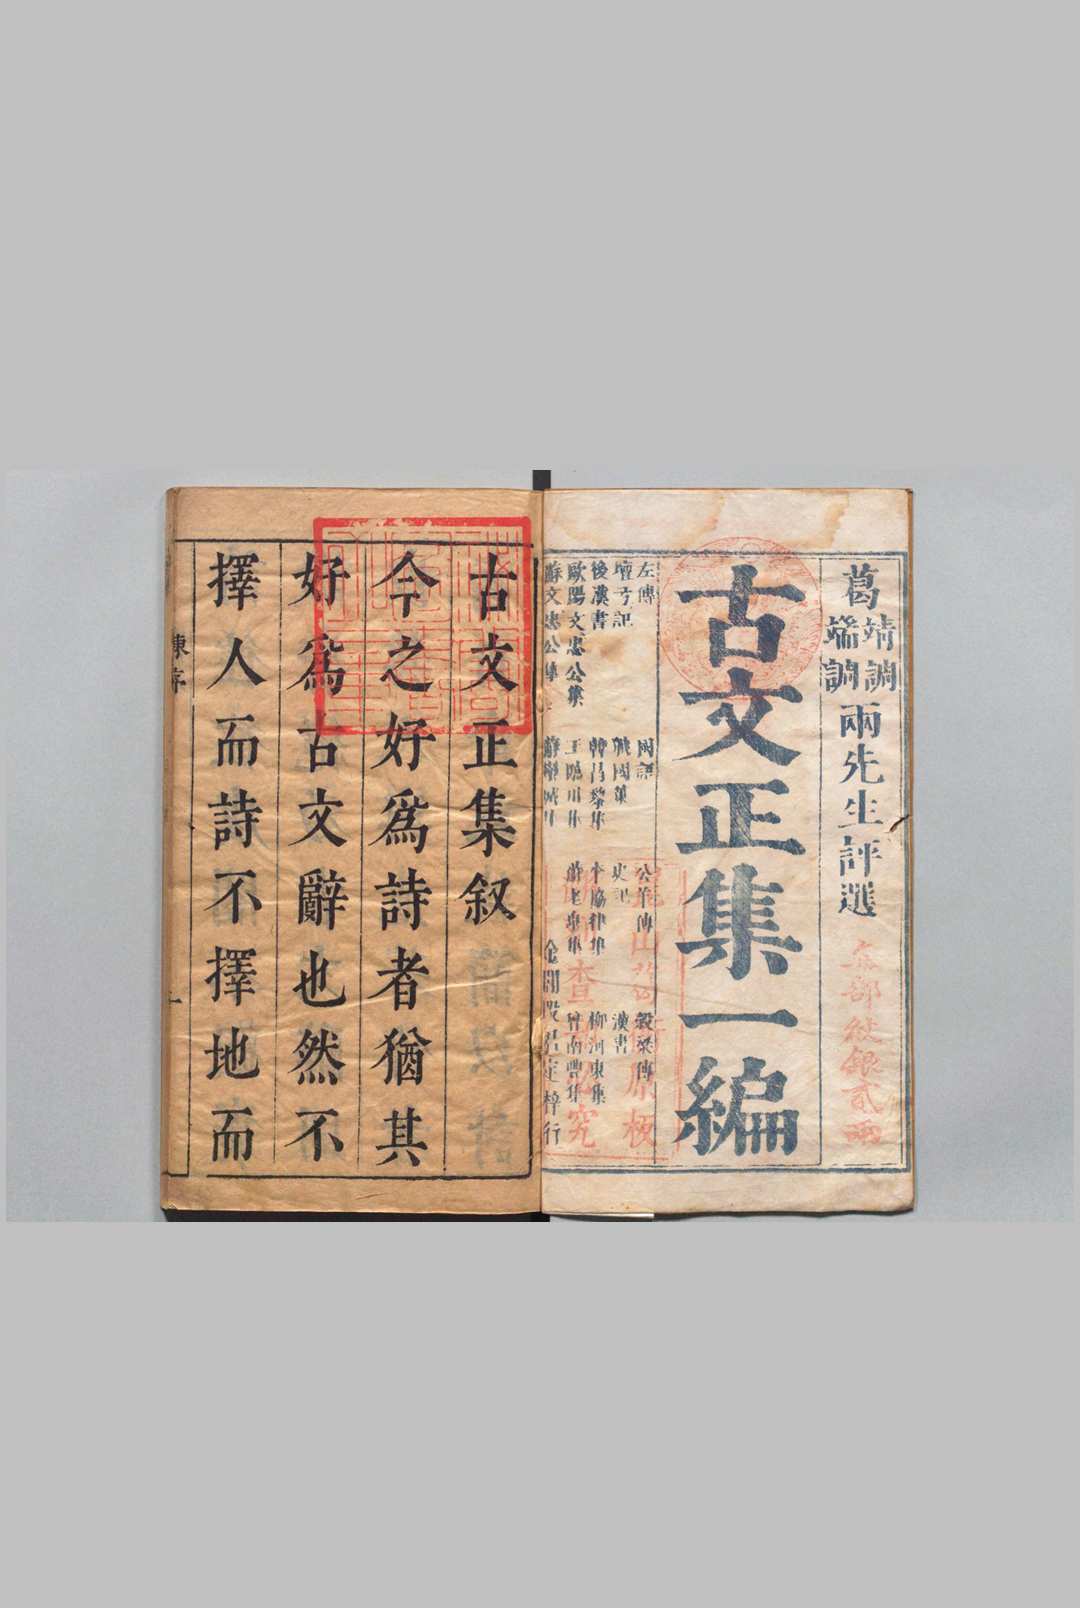 葛靖調端調兩先生評選
每部紋銀貳兩
古文正集一編
左傳 國語 公羊傳 穀梁傳
檀弓記 戰國策 史記 漢書
後漢書 韓昌黎集 李協律集 柳河東集
歐陽文忠公集 王臨川集 蘇老泉集 曾南豐集
蘇文忠公集 蘇欒城集
金閶段君定梓行
古文正集叙
今之好爲詩者猶其
好爲古文辭也然不
擇人而詩不擇地而
陳序
一